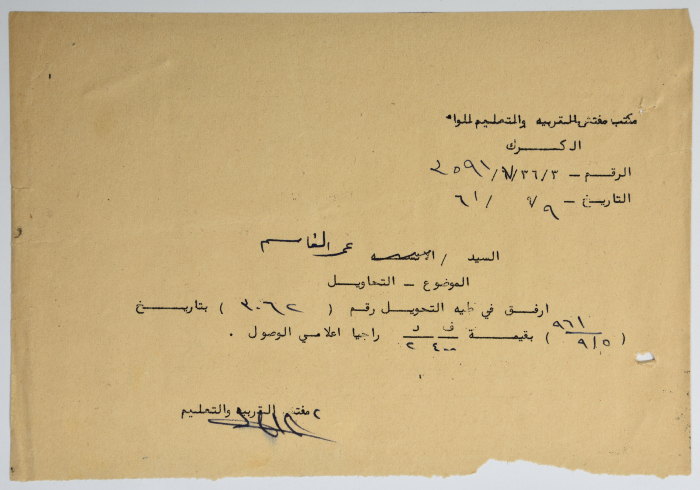 مكتب مفتش التربيه والتعليم للواء
الكرك
الرقم - ٣/٣٦/٧/٢٥٩١
التاريخ - ٩/٧ /٦١
السيد / الانسه عمر القاسم
الموضوع - التحاويل
ارفق في طيه التحويل رقم ( ٣٠٦٢ ) بتاريخ
( ٩/٥ ٩٦١ ) بقيمة ف ٤٠٠ د ٢ راجيا اعلامي الوصول .
مفتش التربيه والتعليم